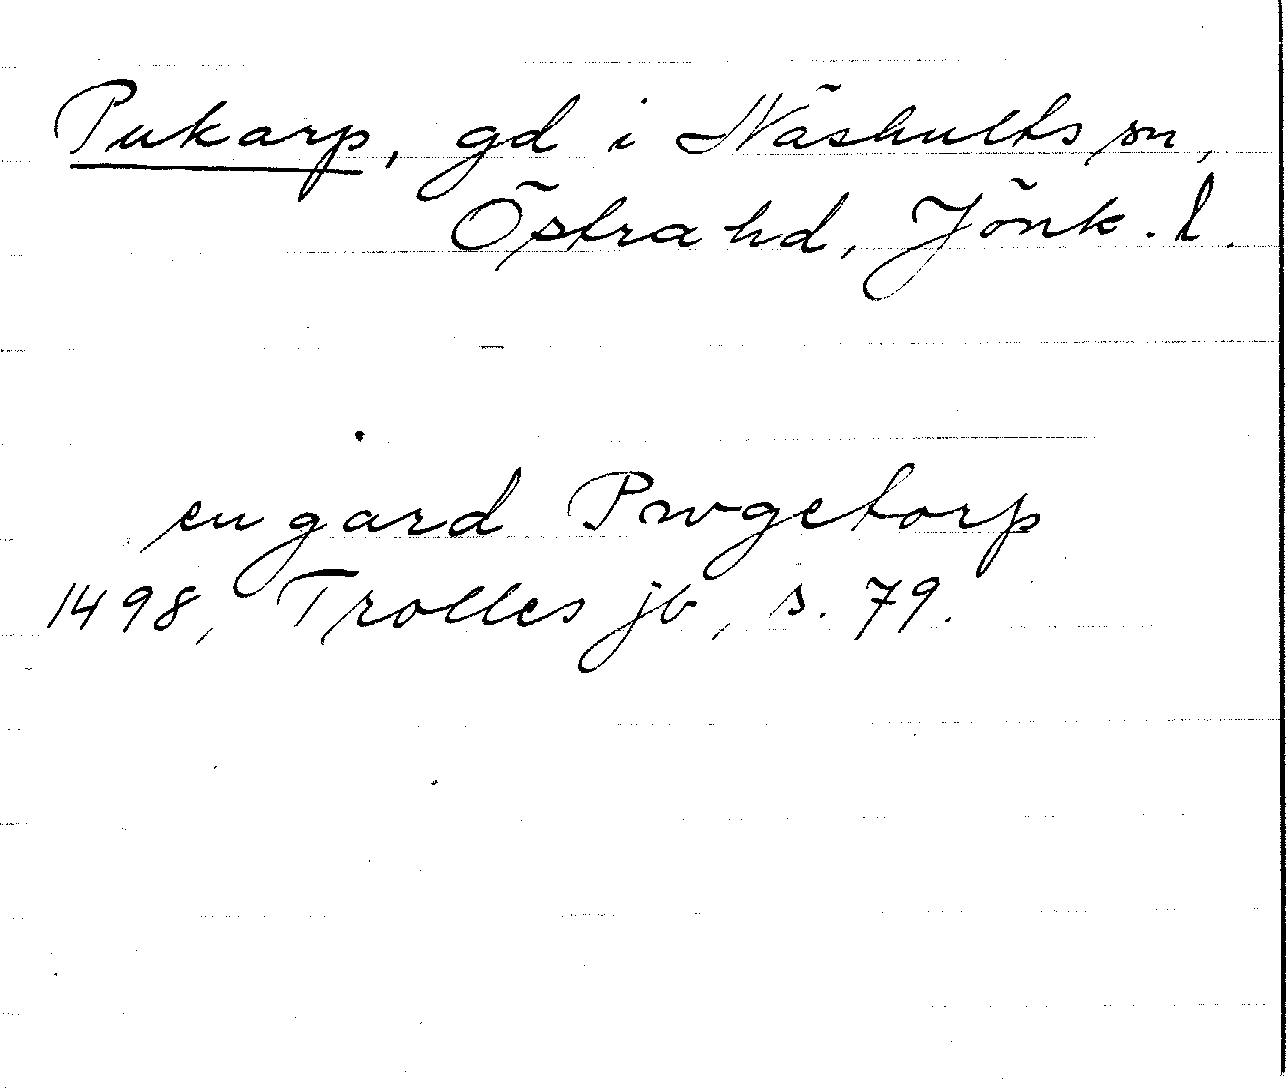 Pukarp, gd i Näshults sn,
Östra hd, Jönk. l.
en gard Pwgetorp
1498, Trolles jb, s. 79.